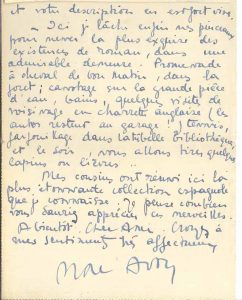 et votre description en est fort vive.
- Ici je lâche enfin mes pinceaux
pour mener la plus exquise des
existences de roman, dans une
admirable demeure. Promenade
à cheval de bon matin, dans la
forêt; canotage sur la grande pièce
d'eau, bains, quelques visites de
voisinage en charrette anglaise (les
autos restent au garage), tennis,
dans la belle Bibliothèque,
et le soir, nous allons tirer quelques
lapins ou lièvres..
Mes cousins ont réuni ici la
plus étonnante collection espagnole
que je connaisse. Je pense combien
vous sauriez apprécier ces merveilles.
A bientôt. Cher Ami. Croyez à
mes sentiments très affectueux